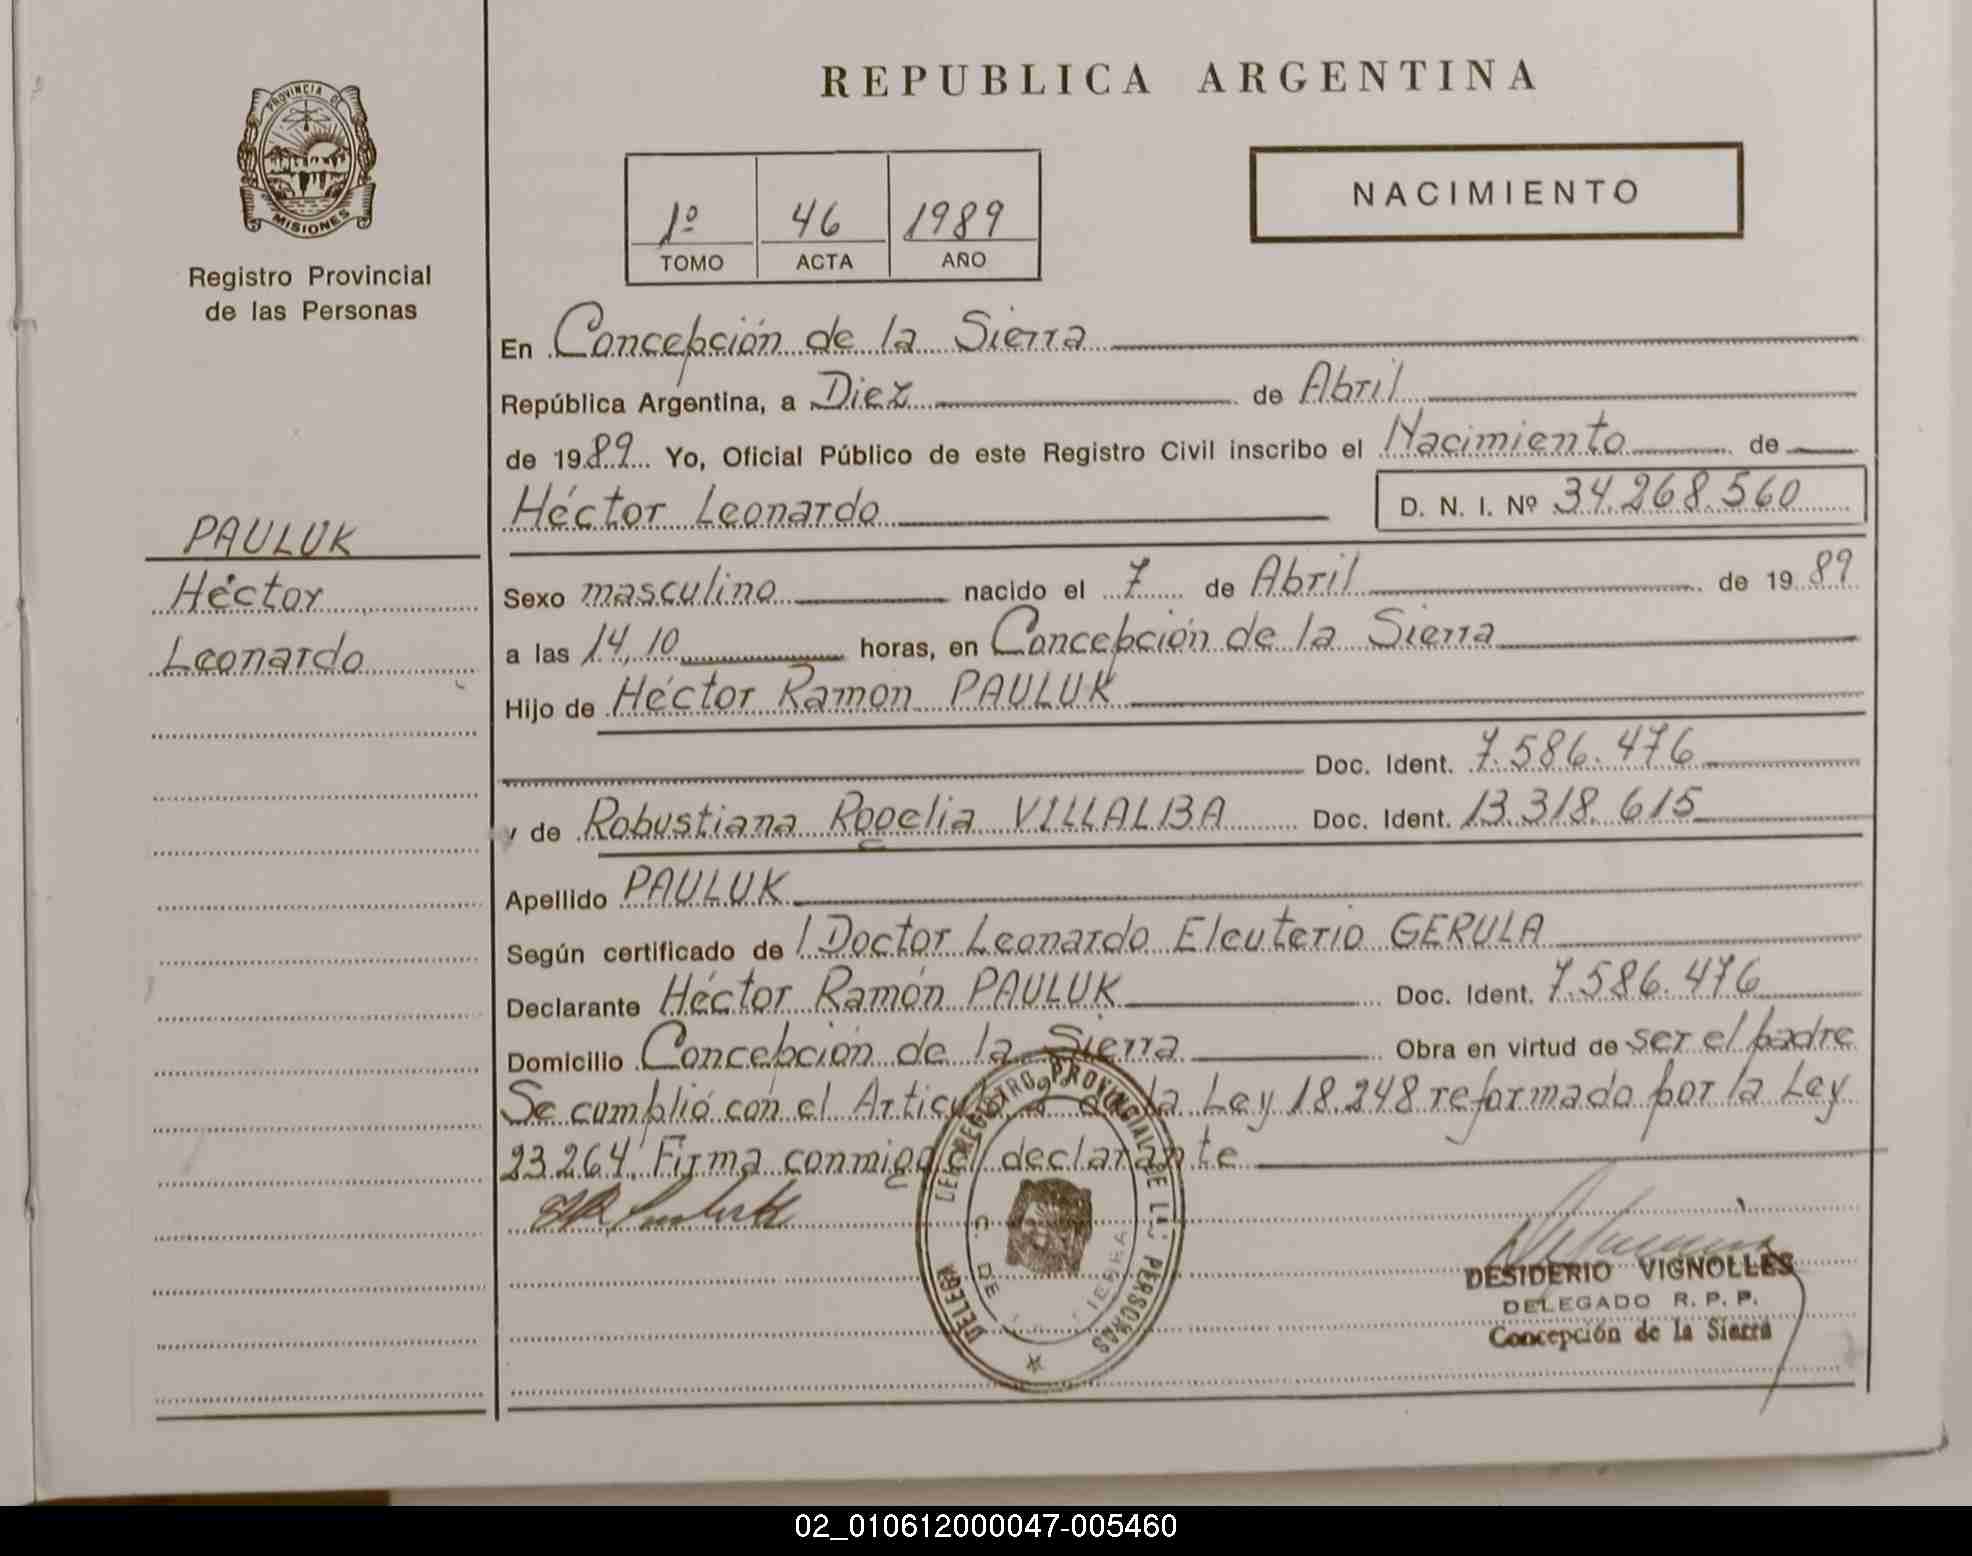 PROVINCIA DE
MISIONES
Registro Provincial
de las Personas
PAULUK
Héctor
Leonardo
REPUBLICA ARGENTINA
1º 46 1989
TOMO ACTA AÑO
NACIMIENTO
En Concepción de la Sierra
República Argentina, a Diez de Abril
de 1989 Yo, Oficial Público de este Registro Civil inscribo el Nacimiento de
Héctor Leonardo D. N. I. Nº 34.268.560
Sexo masculino nacido el 7 de Abril de 1989
a las 14,10 horas, en Concepción de la Sierra
Hijo de Héctor Ramon PAULUK
Doc. Ident. 7.586.476
y de Robustiana Rogelia VILLALBA Doc. Ident. 13.318.615
Apellido PAULUK
Según certificado de l Doctor Leonardo Eleuterio GERULA
Declarante Héctor Ramón PAULUK Doc. Ident. 7.586.476
Domicilio Concepción de la Sierra Obra en virtud de ser el padre
Se cumplió con el Articulo de la Ley 18.248 reformado por la Ley
23.264. Firma conmigo el declarante
DEL REGISTRO PROVINCIAL DE LAS PERSONAS
C. DE
DESIDERIO VIGNOLLES
DELEGADO R. P. P.
Concepción de la Sierra
02_010612000047-005460